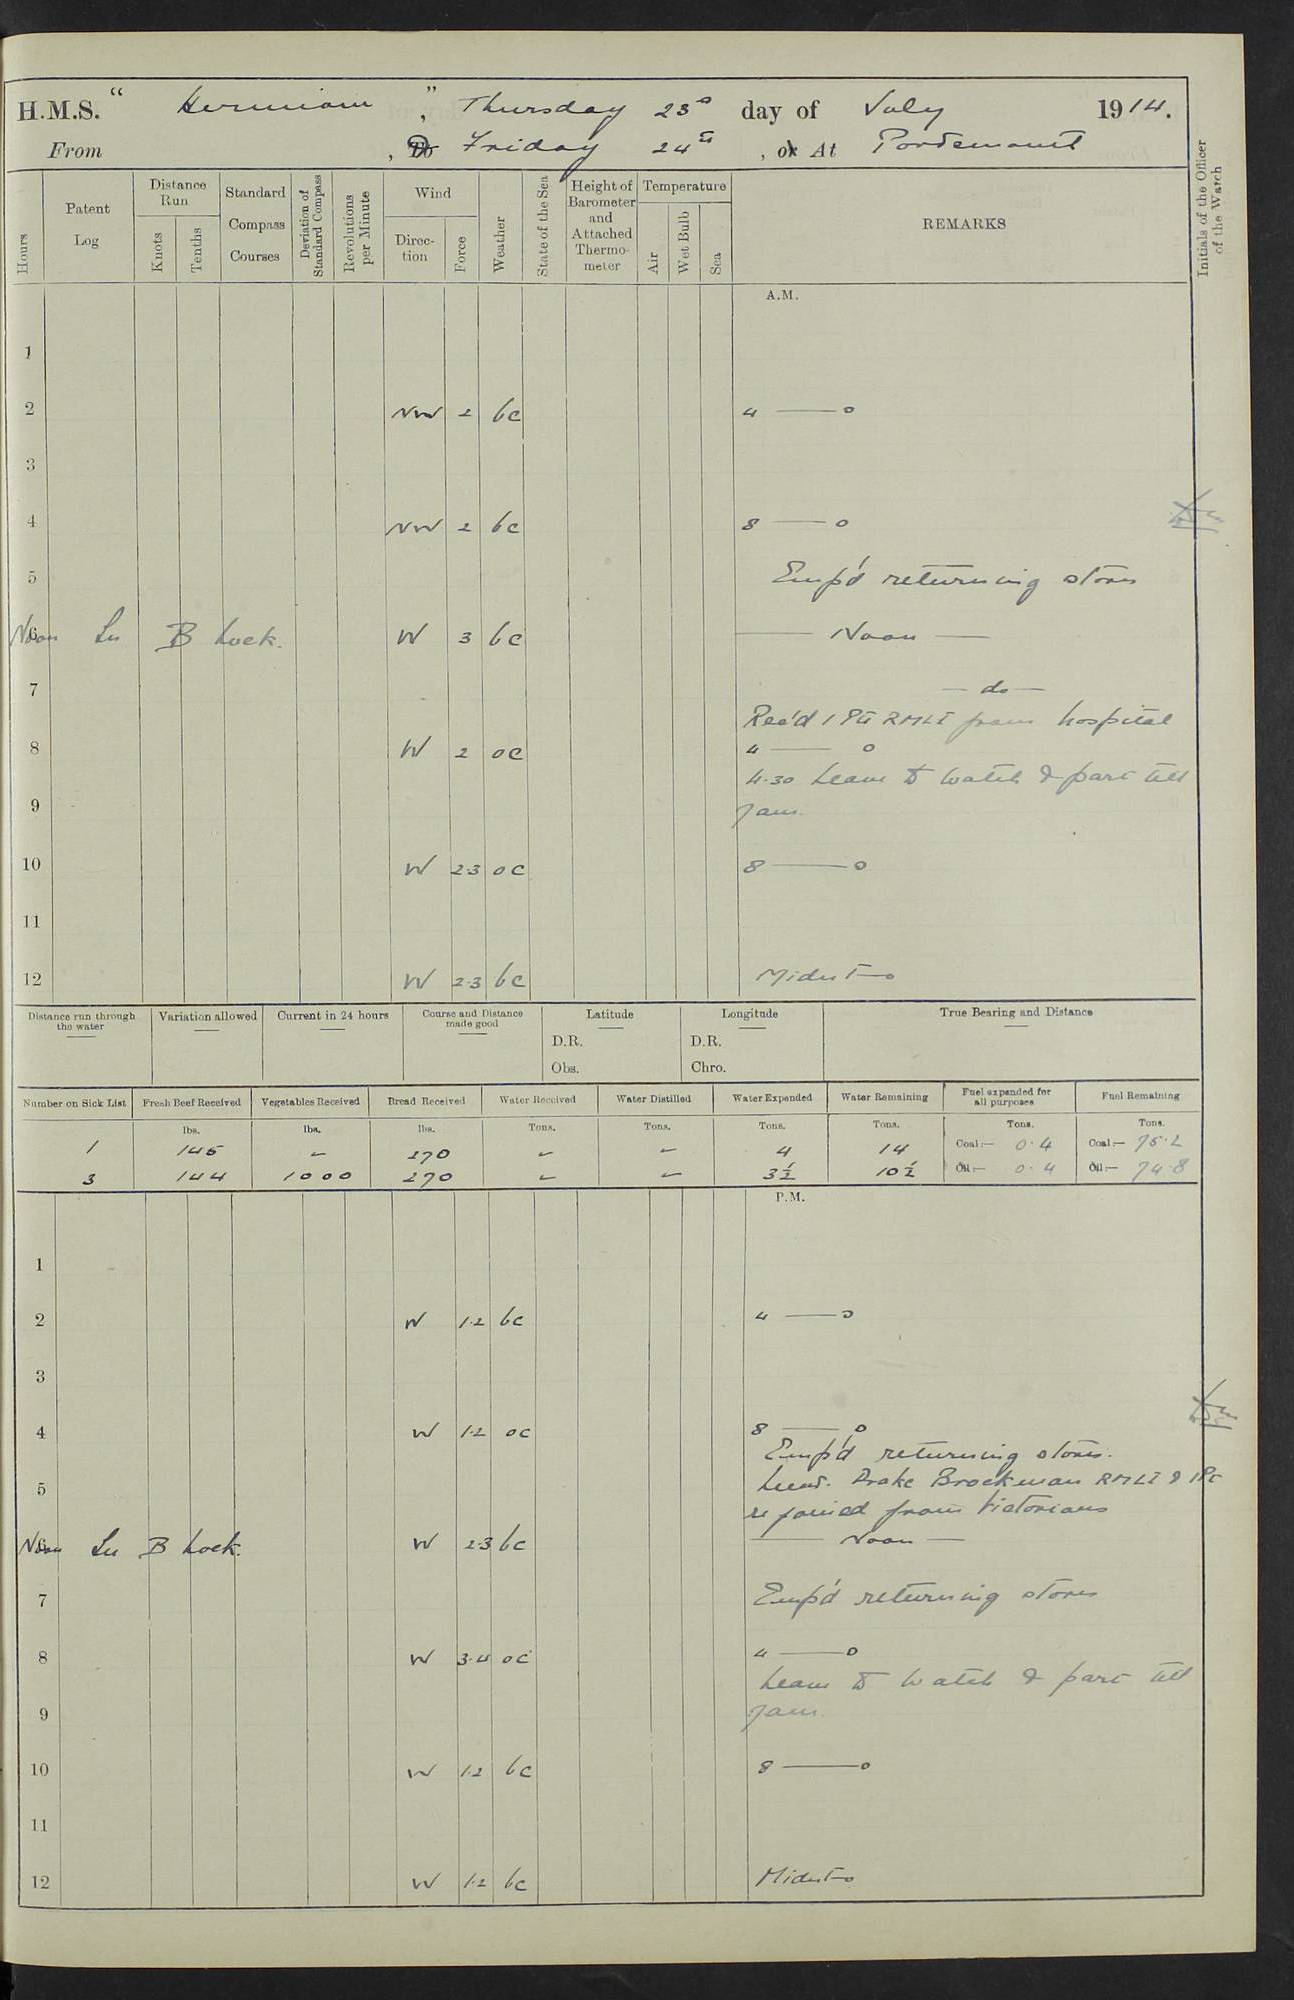 H.M.S. " Hermione ", Thursday 23ᵈ day of July 1914.
From , Do Friday 24th , or At Portsmouth
Hours
Patent Log
Distance Run
Knots
Tenths
Standard Compass Courses
Deviation of Standard Compass
Revolutions per Minute
Wind
Direction
Force
Weather
State of the Sea
Height of Barometer and Attached Thermometer
Temperature
Air
Wet Bulb
Sea
REMARKS
Initials of the Officer of the Watch
A.M.
1
2 NW 2 bc 4 —— o
3
4 NW 2 bc 8 —— o
5 Emp'd returning stores
6 Noon In B Lock. W 3 bc —— Noon ——
7 — do —
Rec'd 1 Pte RMLI from hospital
8 W 2 oc 4 —— o
4.30 Leave to watch & part till
9 7am.
10 W 2.3 oc 8 —— o
11
12 W 2.3 bc Midnt—o
Distance run through the water
Variation allowed
Current in 24 hours
Course and Distance made good
Latitude
D.R.
Obs.
Longitude
D.R.
Chro.
True Bearing and Distance
Number on Sick List Fresh Beef Received Vegetables Received Bread Received Water Received Water Distilled Water Expended Water Remaining Fuel expended for all purposes Fuel Remaining
lbs. lbs. lbs. Tons. Tons. Tons. Tons. Tons. Tons.
1 145 – 270 – – 4 14 Coal:— 0.4 Coal:— 75.2
3 144 1000 270 – – 3½ 10½ Oil:— 0.4 Oil:— 74.8
P.M.
1
2 W 1.2 bc 4 —— o
3
4 W 1.2 oc 8 —— o
Emp'd returning stores.
5 Lieut. Drake Brockman RMLI & 1 Pte
rejoined from Victorious
6 Noon In B Lock. W 2.3 bc —— Noon ——
7 Emp'd returning stores
8 W 3.4 oc 4 —— o
Leave to watch & part till
9 7am
10 W 1.2 bc 8 —— o
11
12 W 1.2 bc Midnt—o